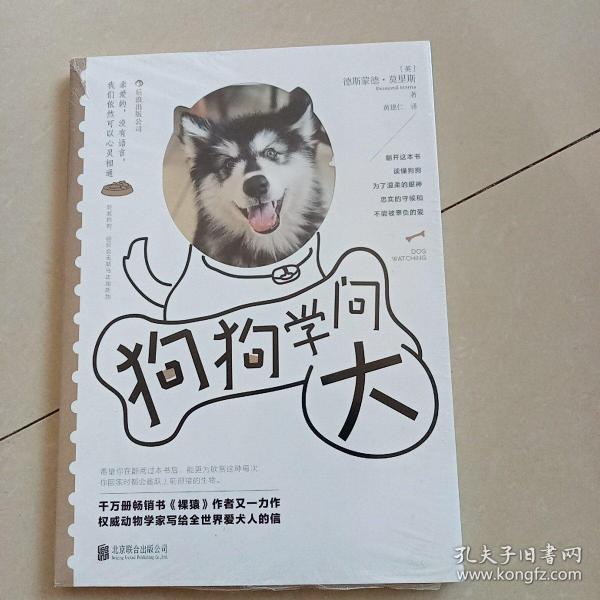 后浪出版公司
亲爱的，没有语言，
我们依然可以心灵相通
[英]
德斯蒙德·莫里斯
Desmond Morris
著
黄建仁 译
翻开这本书
读懂狗狗
为了温柔的眼神
忠实的守候和
不能被辜负的爱
DOG
WATCHING
狗狗学问
大
希望你在翻阅过本书后，能更为欣赏这种每次
你回家时都会雀跃上前迎接的生物。
千万册畅销书《裸猿》作者又一力作
权威动物学家写给全世界爱犬人的信
北京联合出版公司
Beijing United Publishing Co.,Ltd.
孔夫子旧书网
www.kongfz.com